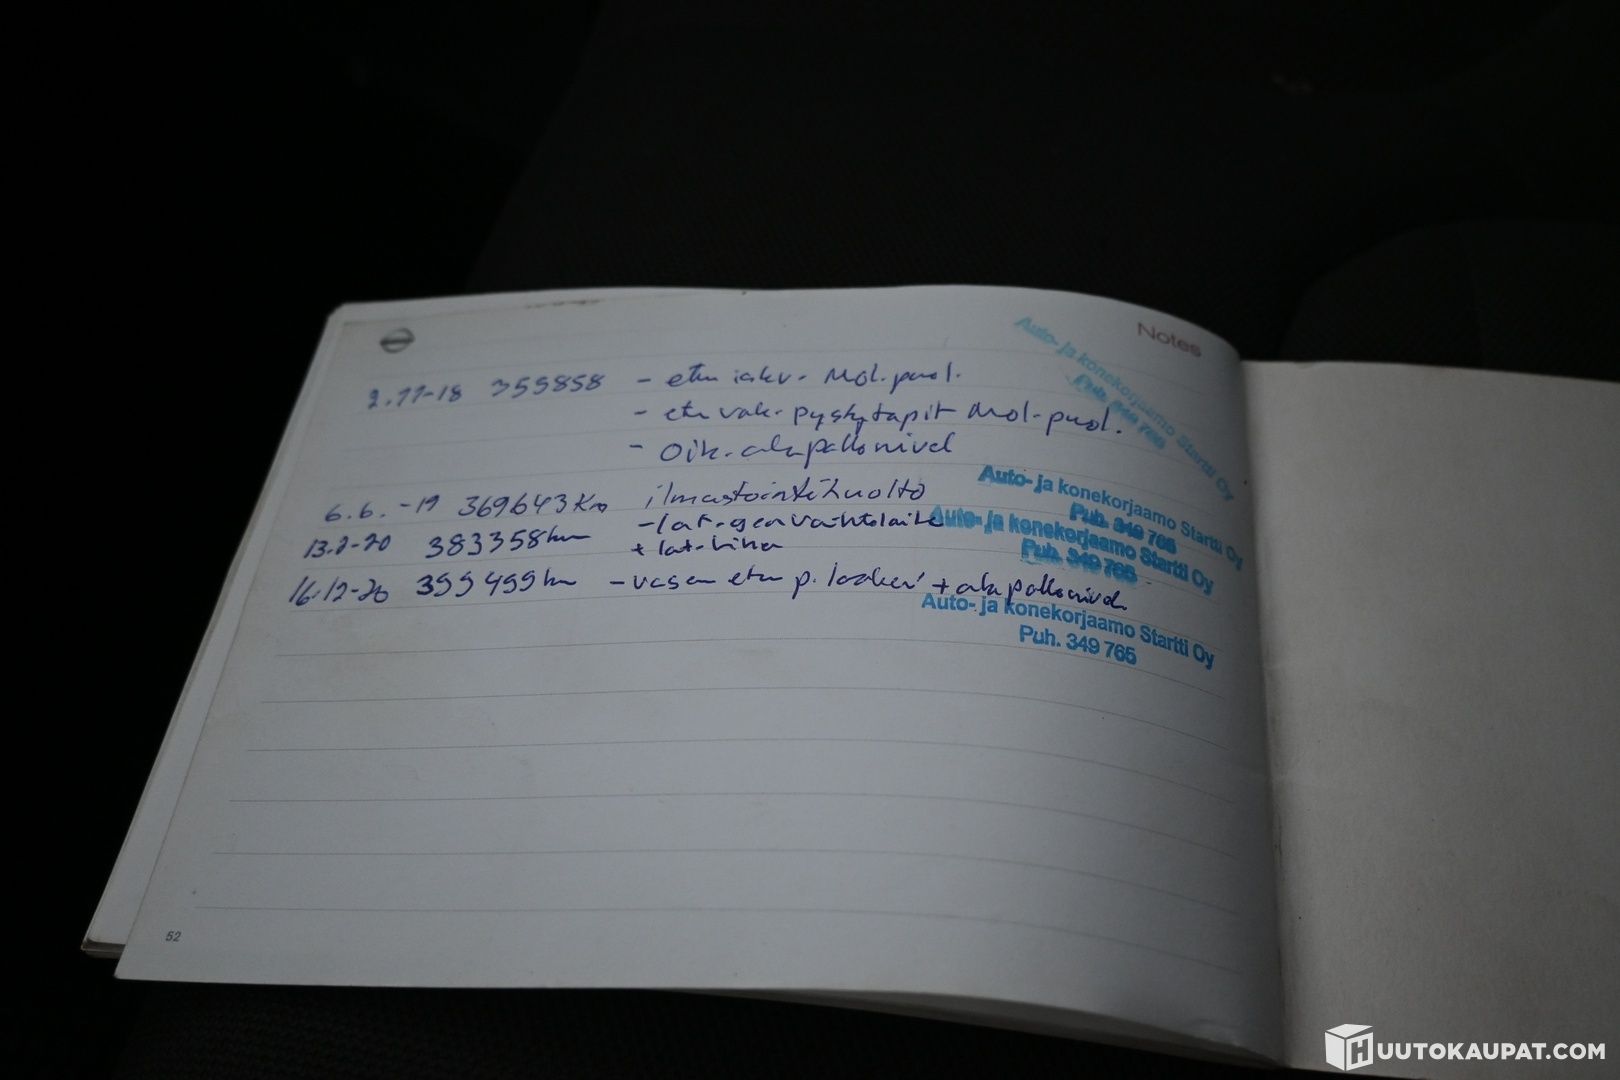 Notes
2.11-18 355858 - etu iskv. Mol.puol.
- etu vak. pystytapit Mol-puol.
- Oik. alapallonivel
Auto- ja konekorjaamo Startti Oy
Puh. 349 765
6.6.-19 369643 Km ilmastointihuolto
Auto- ja konekorjaamo Startti Oy
Puh. 349 765
13.2-20 383358km - lat.gen vaihtolaite
+ lat-hihna
Auto- ja konekorjaamo Startti Oy
Puh. 349 765
16.12-20 399499km - vasen etu p. laakeri + alapallonivel
Auto- ja konekorjaamo Startti Oy
Puh. 349 765
52
HUUTOKAUPAT.COM